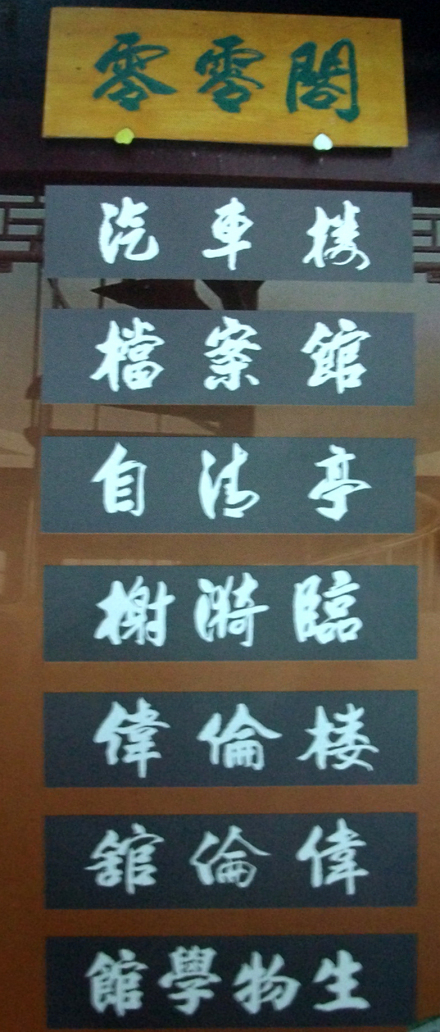 零零閣
汽車楼
檔案館
自清亭
臨漪榭
偉倫楼
偉倫舘
生物學館